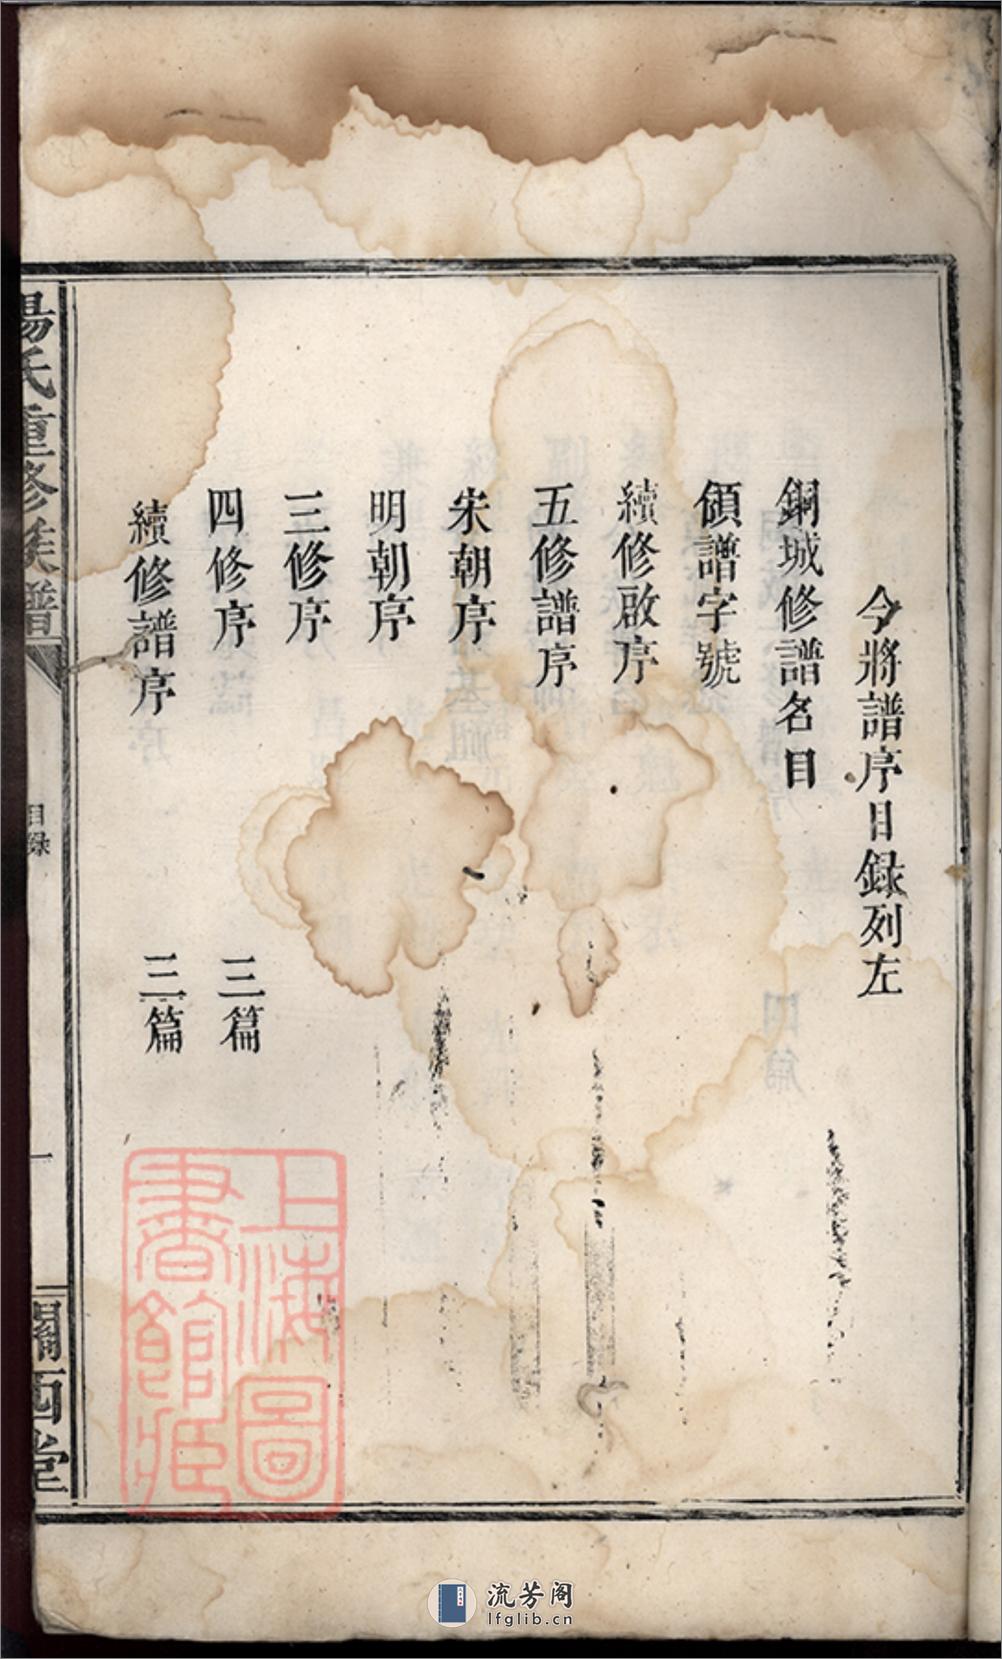 今將譜序目録列左
銅城修譜名目
領譜字號
續修啟序
五修譜序
宋朝序
明朝序
三修序
四修序 三篇
續修譜序 三篇
楊氏重修族譜
目録
一
關西堂
上海圖
書館藏
流芳阁
lfglib.cn